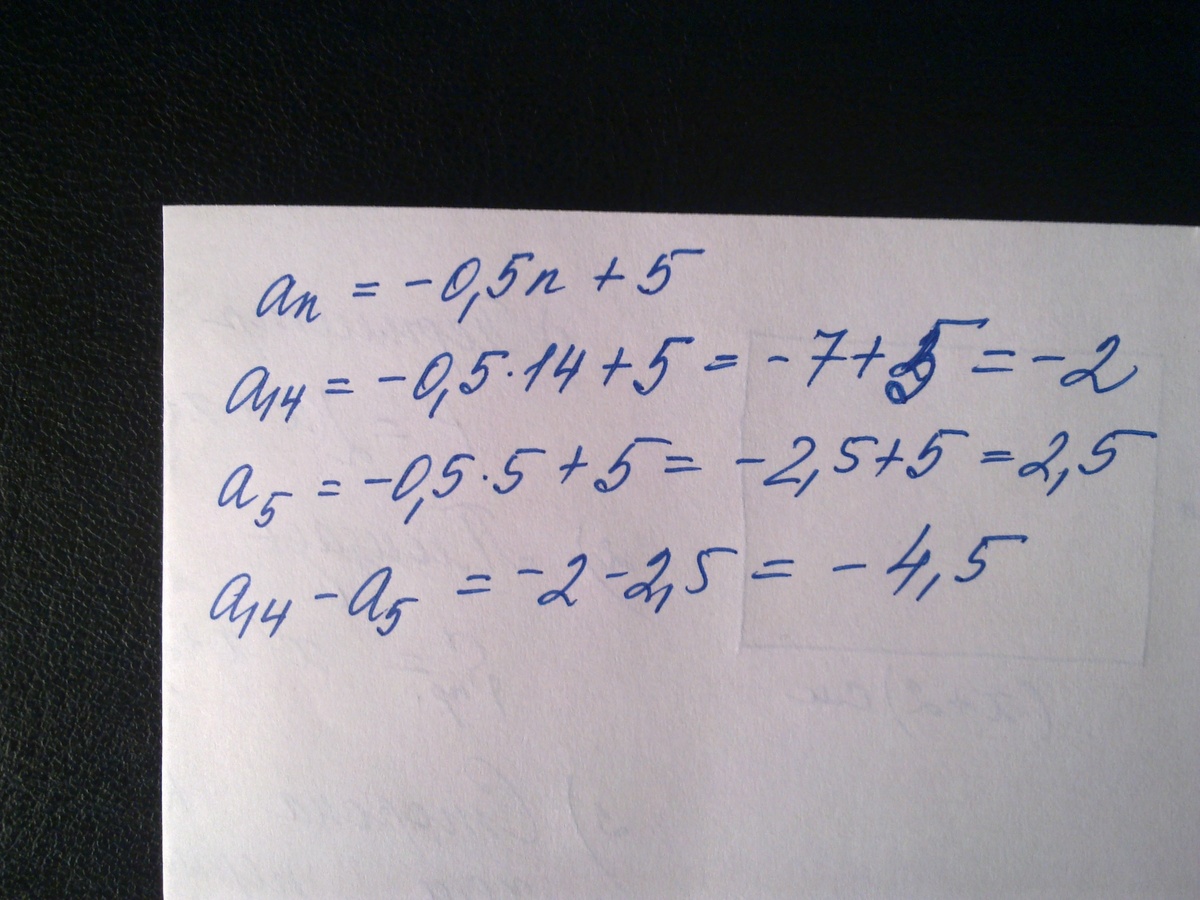 aₙ = -0,5n + 5
a₁₄ = -0,5·14 + 5 = -7+5 = -2
a₅ = -0,5·5 + 5 = -2,5+5 = 2,5
a₁₄ - a₅ = -2 - 2,5 = -4,5